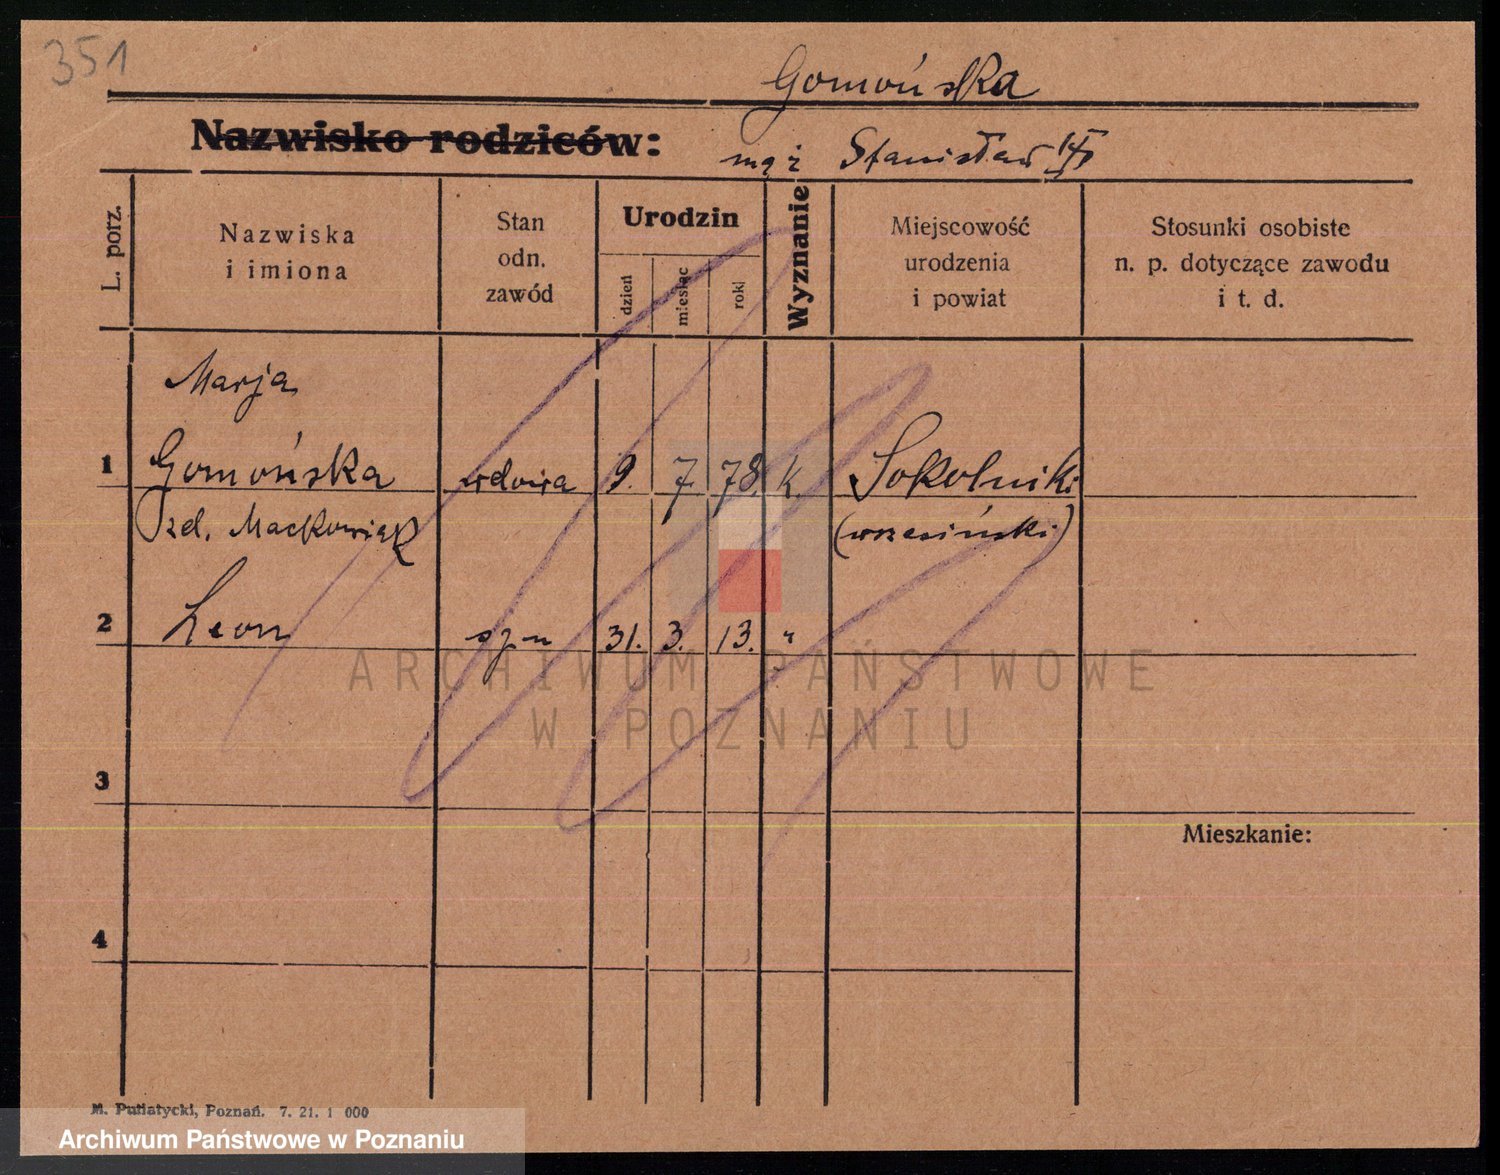 351
Gomońska
Nazwisko rodziców:
mąż Stanisław
L. porz.
Nazwiska
i imiona
Stan
odn.
zawód
Urodzin
dzień
miesiąc
rok
Wyznanie
Miejscowość
urodzenia
i powiat
Stosunki osobiste
n. p. dotyczące zawodu
i t. d.
Marja
1 Gomońska wdowa 9. 7. 78. k. Sokolniki
zd. Maćkowiak (wrzesiński)
2 Leon syn 31. 3. 13. "
ARCHIWUM PAŃSTWOWE
W POZNANIU
3
Mieszkanie:
4
M. Putiatycki, Poznań. 7. 21. 1 000
Archiwum Państwowe w Poznaniu